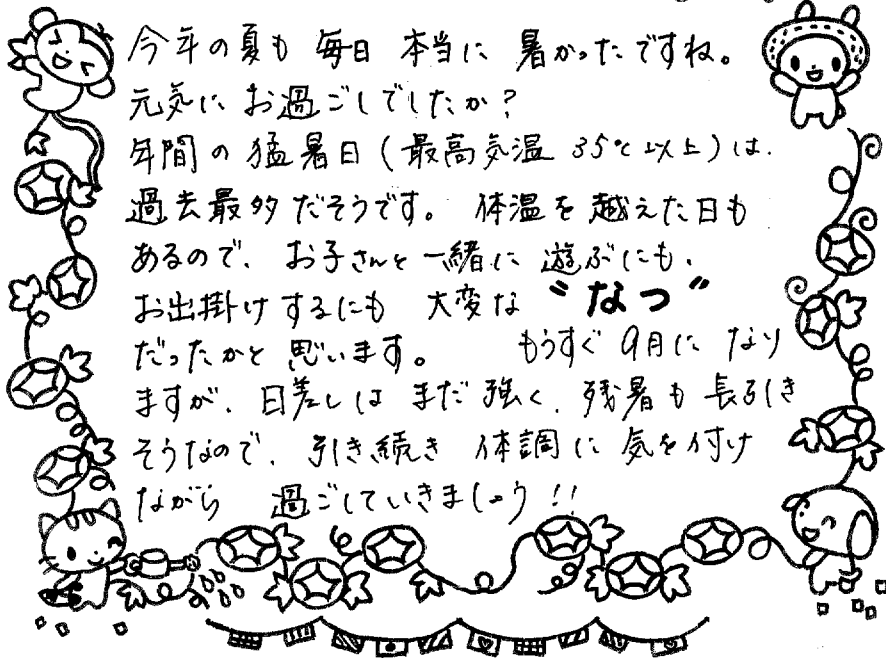 今年の夏も 毎日 本当に 暑かったですね。
元気に お過ごしでしたか？
年間の 猛暑日（最高気温 35℃以上）は、
過去最多だそうです。 体温を 越えた日も
あるので、お子さんと 一緒に 遊ぶにも、
お出掛けするにも 大変な “なつ”
だったかと 思います。 もうすぐ 9月に なり
ますが、日差しは まだ 強く、残暑も 長引き
そうなので、引き続き 体調に 気を付け
ながら 過ごしていきましょう！！